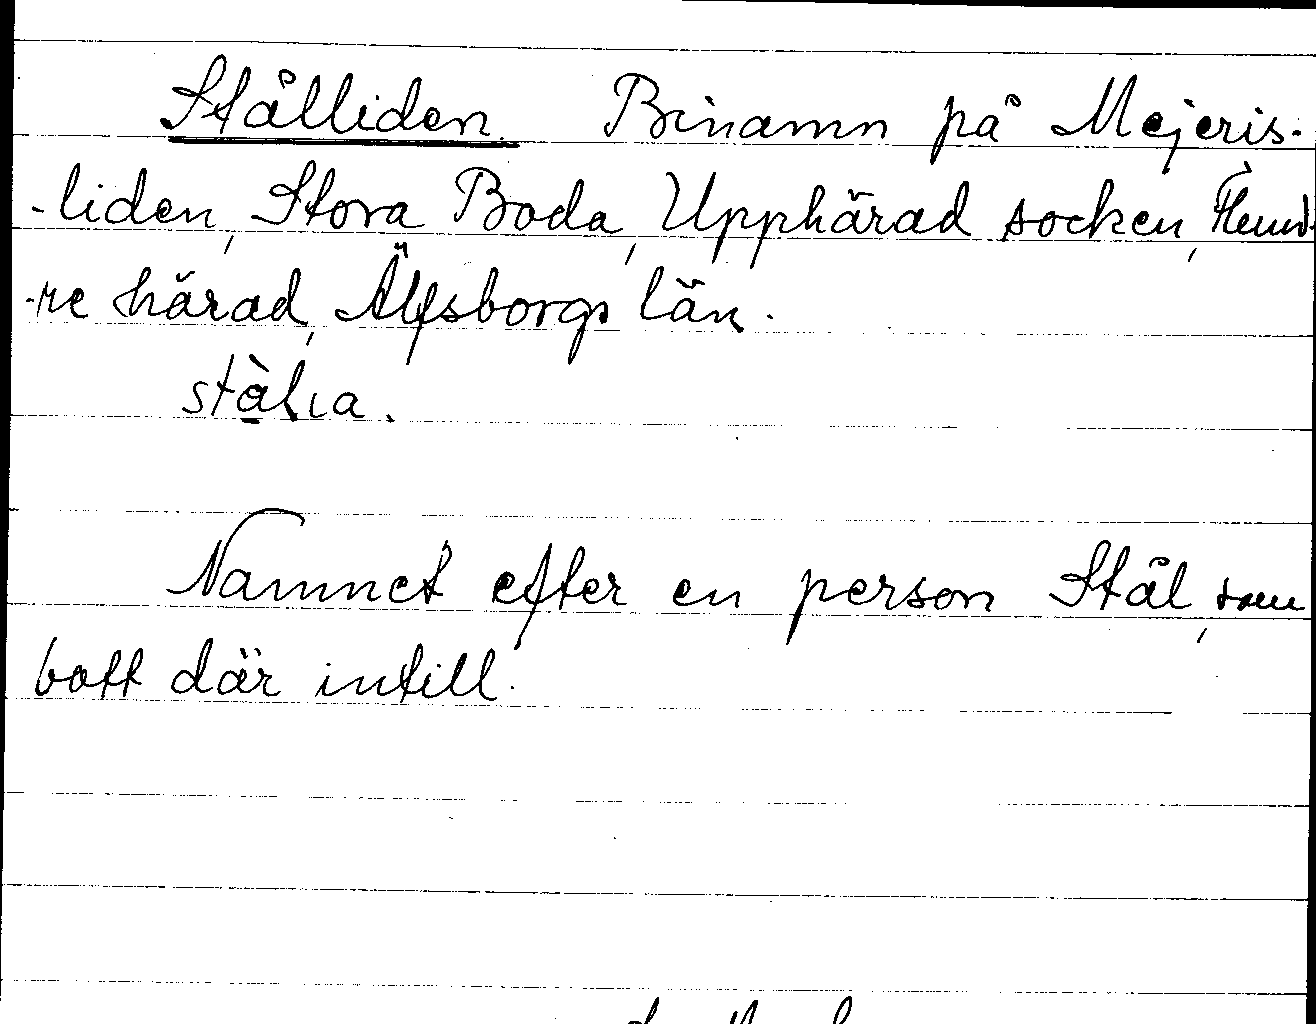 Stålliden. Binamn på Mejeris-
-liden, Stora Boda, Upphärad socken, Flund-
-re härad, Älfsborgs län.
stàlıa.
Namnet efter en person Stål, som
bott där intill.